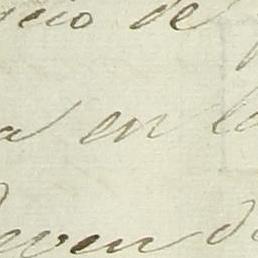 cio de
a en la
even d